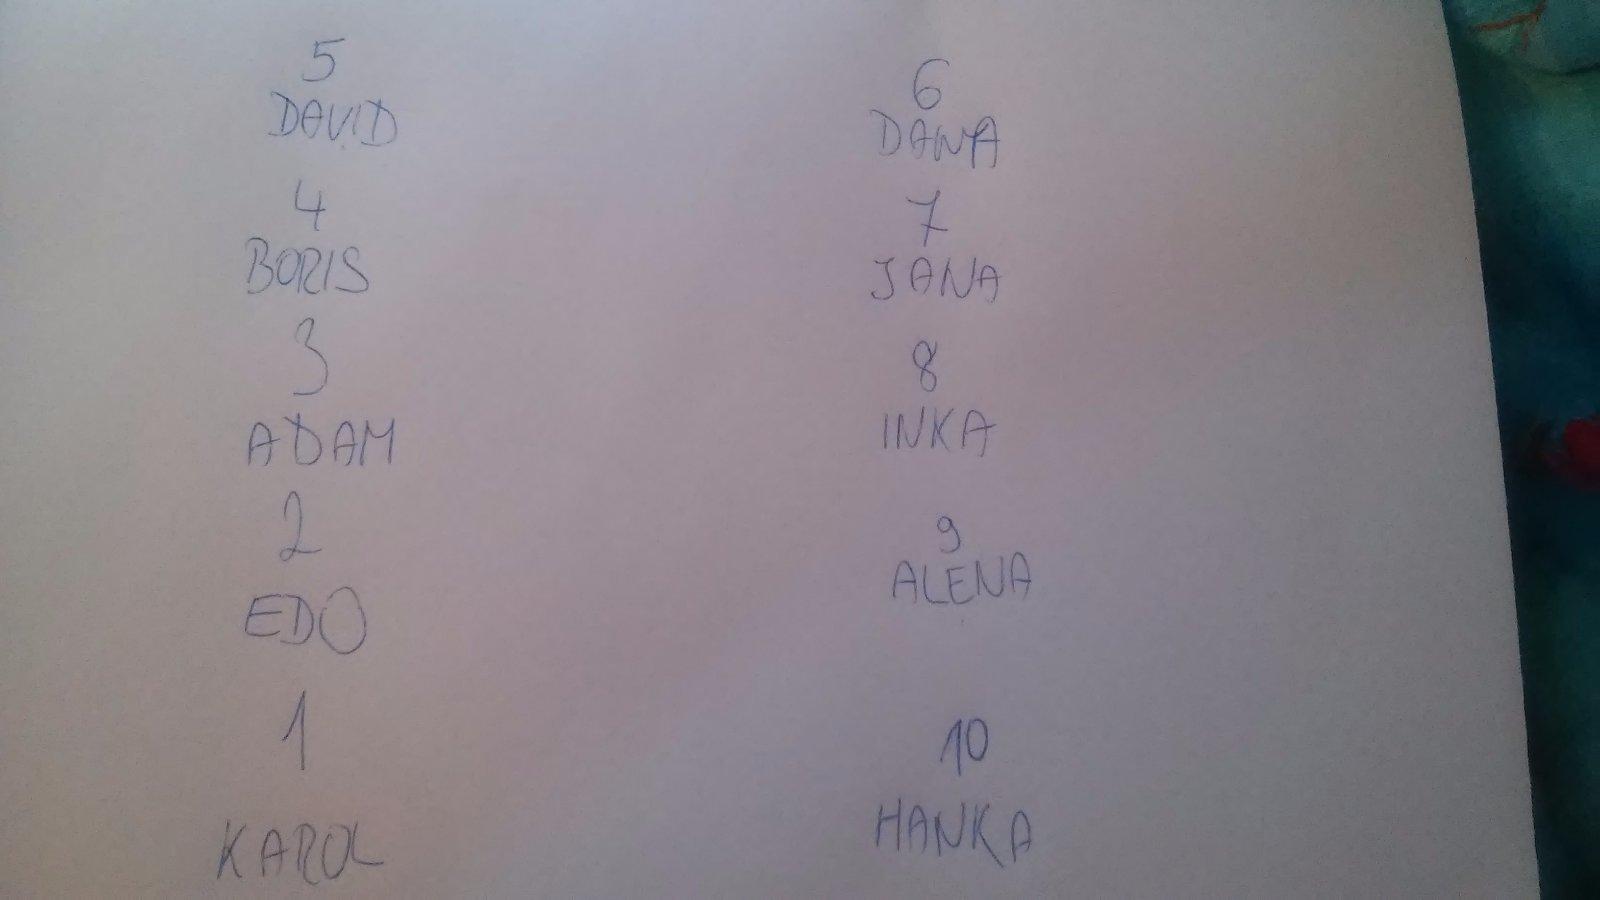 5
DAVID
4
BORIS
3
ADAM
2
EDO
1
KAROL
6
DANA
7
JANA
8
INKA
9
ALENA
10
HANKA